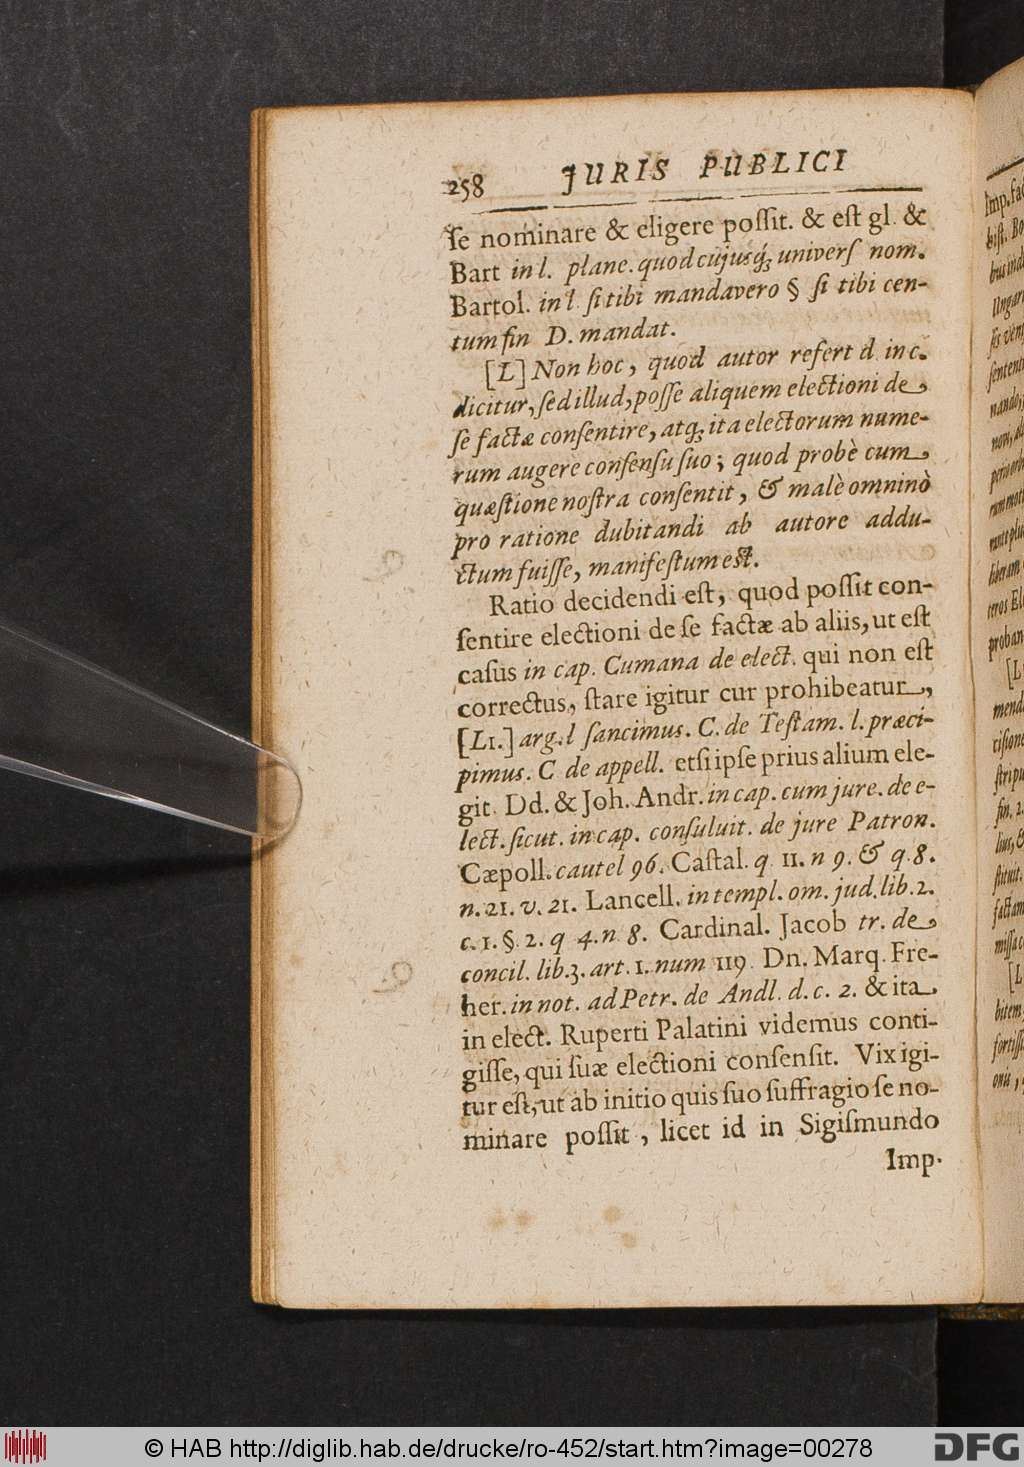 258 JURIS PUBLICI
ſe nominare & eligere poſſit. & eſt gl. &
Bart in l. plane. quod cujusq́; univerſ nom.
Bartol. in l ſi tibi mandavero § ſi tibi cen-
tum fin D. mandat.
[L] Non hoc, quod autor refert d in c.
dicitur, ſed illud, poſſe aliquem electioni de
ſe factæ conſentire, atq; ita electorum nume-
rum augere conſenſu ſuo; quod probè cum
quæſtione noſtra conſentit, & malè omninò
pro ratione dubitandi ab autore addu-
ctum fuiſſe, manifeſtum eſt.
Ratio decidendi eſt, quod poſſit con-
ſentire electioni de ſe factæ ab aliis, ut eſt
caſus in cap. Cumana de elect. qui non eſt
correctus, ſtare igitur cur prohibeatur,
[L1.] arg. l ſancimus. C. de Teſtam. l. præci-
pimus. C de appell. etſi ipſe prius alium ele-
git. Dd. & Joh. Andr. in cap. cum jure. de e-
lect. ſicut. in cap. conſuluit. de jure Patron.
Cæpoll. cautel 96. Caſtal. q 11. n 9. & q. 8.
n. 21. v. 21. Lancell. in templ. om. jud. lib. 2.
c. 1. §. 2. q 4. n 8. Cardinal. Jacob tr. de
concil. lib. 3. art. 1. num 119. Dn. Marq. Fre-
her. in not. ad Petr. de Andl. d. c. 2. & ita
in elect. Ruperti Palatini videmus conti-
giſſe, qui ſuæ electioni conſenſit. Vix igi-
tur eſt, ut ab initio quis ſuo ſuffragio ſe no-
minare poſſit, licet id in Sigiſmundo
Imp.
© HAB http://diglib.hab.de/drucke/ro-452/start.htm?image=00278
DFG